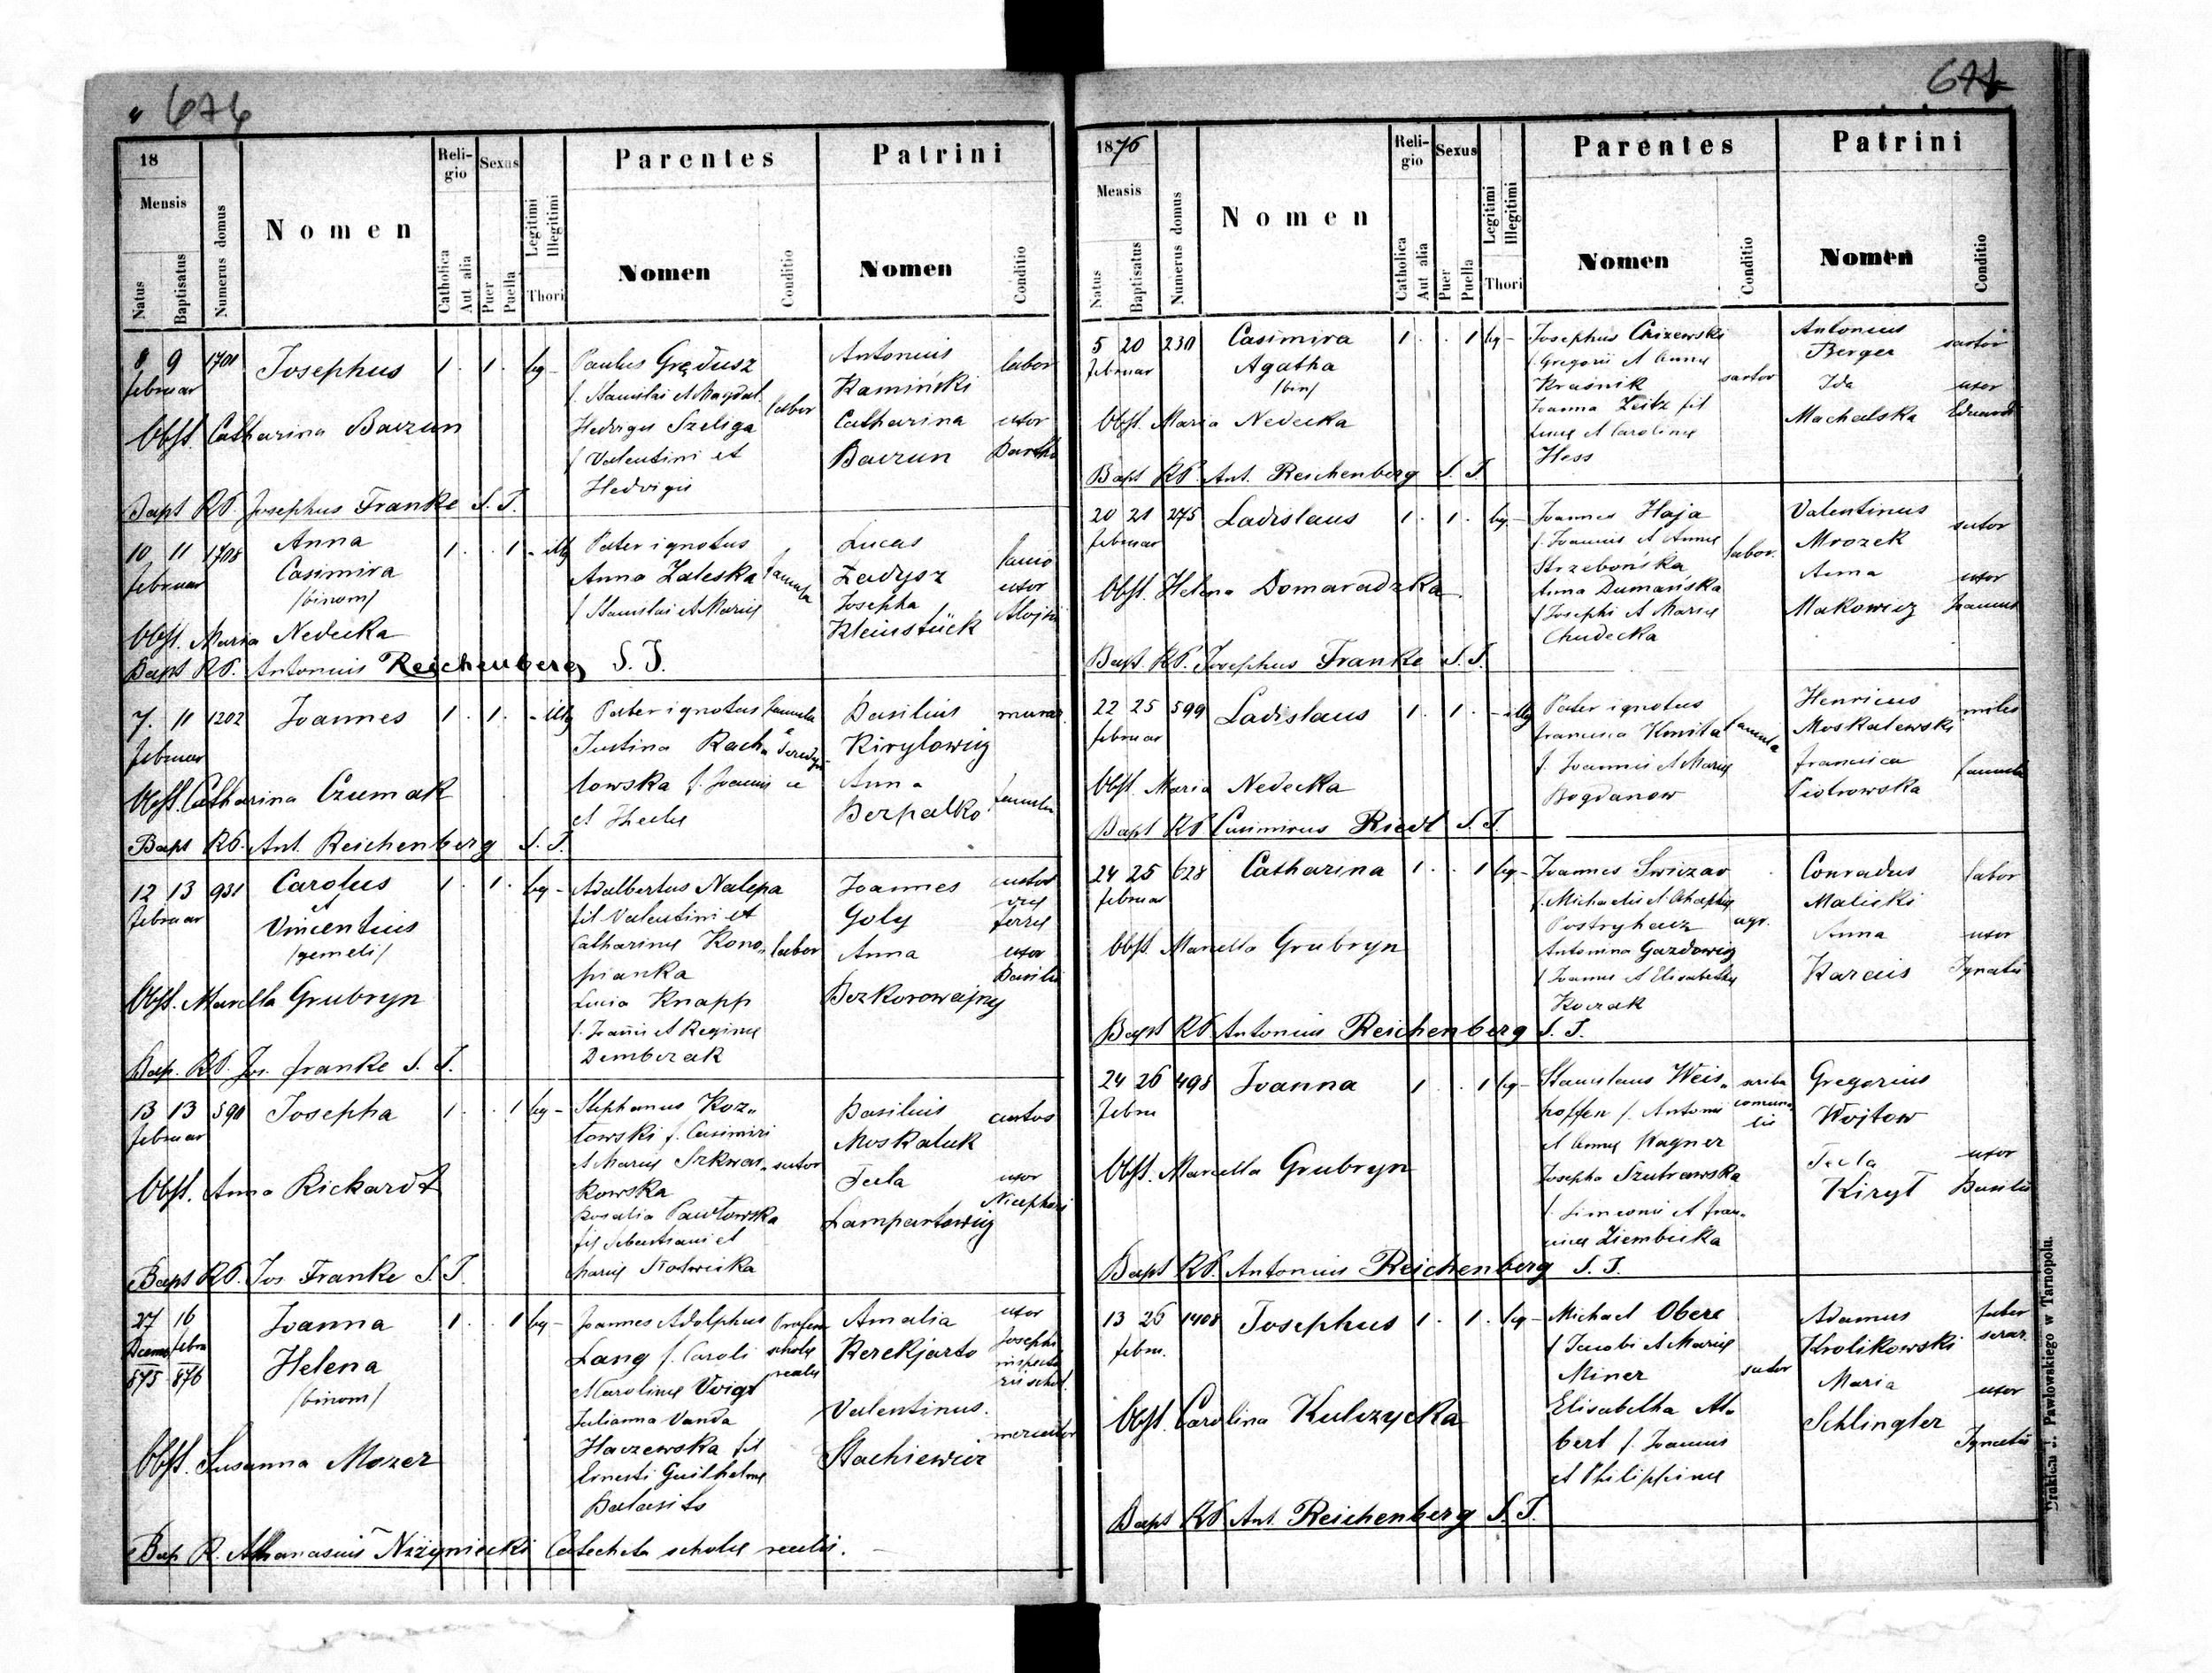 676
18
Mensis
Natus
Baptisatus
Numerus domus
Nomen
Religio
Catholica
Aut alia
Sexus
Puer
Puella
Legitimi
Illegitimi
Thori
Parentes
Nomen
Conditio
Patrini
Nomen
Conditio
8 9 1701 Josephus 1 . 1 . leg - Paulus Grędusz Antonius labor
februar f. Stanislai et Magdal. Kamiński
labor
Obst. Catharina Baczun Hedvigis Szeliga Catharina uxor
f Valentini et Baczun Barth
Hedvigis
Bapt RP. Josephus Franke S. J.
10 11 1708 Anna 1 . . 1 - illeg Pater ignotus Lucas
februar Casimira Anna Zaleska famula Zadysz uxor
/binom/ f Stanislai et Mariae Josepha Alojsii
Obst. Maria Nedecka Kleinstück
Bapt RP. Antonius Reichenberg S. J.
7. 11 1202 Joannes 1 . 1 . - illeg Pater ignotus famula Basilius murar
februar Justina Rach„ Kirylowicz
Obst. Catharina Czumak towska f. Joannis Anna famula
et Theclae Berpalko
Bapt RP. Ant. Reichenberg S. J.
12 13 931 Carolus 1 . 1 . leg - Adalbertus Nalepa Joannes custos
februar et fil Valentini et Goly viae
Vincentius Catharinae Kono„ labor Anna ferreae
/gemeli/ pianka uxor
Obst. Marcella Grubryn Lucia Knapp Bezkorowajny Basilii
f. Joannis et Reginae
Dembczak
Bap. RP. Jos. Franke S. J.
13 13 590 Josepha 1 . . 1 leg - Stephanus Koz„ Basilius custos
februar lowski f. Casimiri Moskaluk
et Mariae Szkwar„ sutor Tecla uxor
Obst. Anna Rickardt kowska Lampartowicz Nicephori
Rosalia Pawłowska
fil Sebastiani et
Mariae Słotwicka
Bapt RP. Jos Franke S. J.
27 16 Joanna 1 . . 1 leg - Joannes Adolphus Profess Amalia uxor
Decem. febru Helena Lang f. Caroli scholae Kerekjarto Josephi
875 876 /binom/ et Carolinae Voigt realis Valentinus
Julianna Vanda mercator
Obst. Susanna Mozer Haczewska fil Stachiewicz
Ernesti Guilhelmae
Balasits
Bap R. Athanasius Niżyniecki Catecheta scholae realis.
677
1876
Mensis
Natus
Baptisatus
Numerus domus
Nomen
Religio
Catholica
Aut alia
Sexus
Puer
Puella
Legitimi
Illegitimi
Thori
Parentes
Nomen
Conditio
Patrini
Nomen
Conditio
5 20 230 Casimira 1 . . 1 leg - Josephus Crizewski Antonius sartor
februar Agatha f. Gregorii et Annae Berger
/bin/ Krasnik sartor Ida uxor
Obst. Maria Nedecka Joanna Zeitz fil Machalska Eduardi
Lucae et Carolinae
Hess
Bapt RP. Ant. Reichenberg S. J.
20 21 275 Ladislaus 1 . 1 . leg - Joannes Haja Valentinus sutor
februar f. Joannis et Annae labor. Mrozek
Strzebońska Anna uxor
Obst. Helena Domaradzka Anna Dumańska Makowicz Joannis
f Josephi et Mariae
Chudecka
Bapt. RP. Josephus Franke S. J.
22 25 599 Ladislaus 1 . 1 . - illeg Pater ignotus Henricus miles
februar Francisca Kmita famula Moskalewski
Obst. Maria Nedecka f. Joannis et Mariae Francisca famula
Bogdanow Piotrowska
Bapt RP Casimirus Riedl S. J.
24 25 628 Catharina 1 . . 1 leg - Joannes Swiczar Conradus labor
februar f. Michaelis et Agaphiae Malicki
Postryhacz agr. Anna uxor
Obst. Marcella Grubryn Antonina Gazdowicz Karcis Ignatii
f Joannis et Elisabethae
Koczak
Bapt RP. Antonius Reichenberg S. J.
24 26 498 Joanna 1 . . 1 leg - Stanislaus Weis„ scriba Gregorius
febru hoffen f. Antonii comuna Wojtow
et Annae Wagner lis Tecla uxor
Obst. Marcella Grubryn Josepha Szutrawska Kirył Basilii
f. Simeonis et Fran„
ciscae Ziembicka
Bapt RP. Antonius Reichenberg S. J.
13 26 1408 Josephus 1 . 1 . leg - Michael Obere Adamus faber
febru. f Jacobi et Mariae Krolikowski serar.
Miner sutor Maria uxor
Obst. Carolina Kulczycka Elisabetha Al„ Schlingler Ignatii
bert f. Joannis
et Philippinae
Bapt RP. Ant. Reichenberg S. J.
Drukiem J. Pawłowskiego w Tarnopolu.